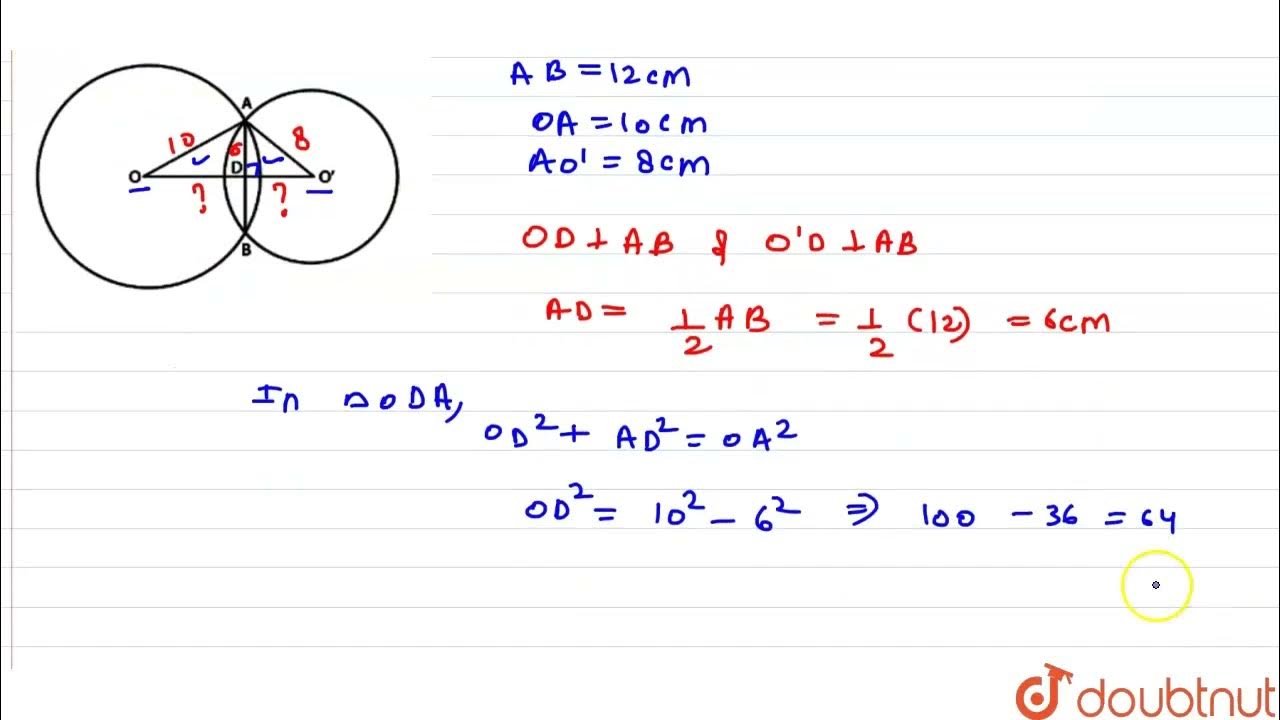 A
10
6
8
O
D
O'
?
?
B
AB = 12cm
OA = 10cm
AO' = 8cm
OD ⊥ AB & O'D ⊥ AB
AD = 1/2 AB = 1/2 (12) = 6cm
In △ODA,
OD² + AD² = OA²
OD² = 10² - 6² ⇒ 100 - 36 = 64
doubtnut